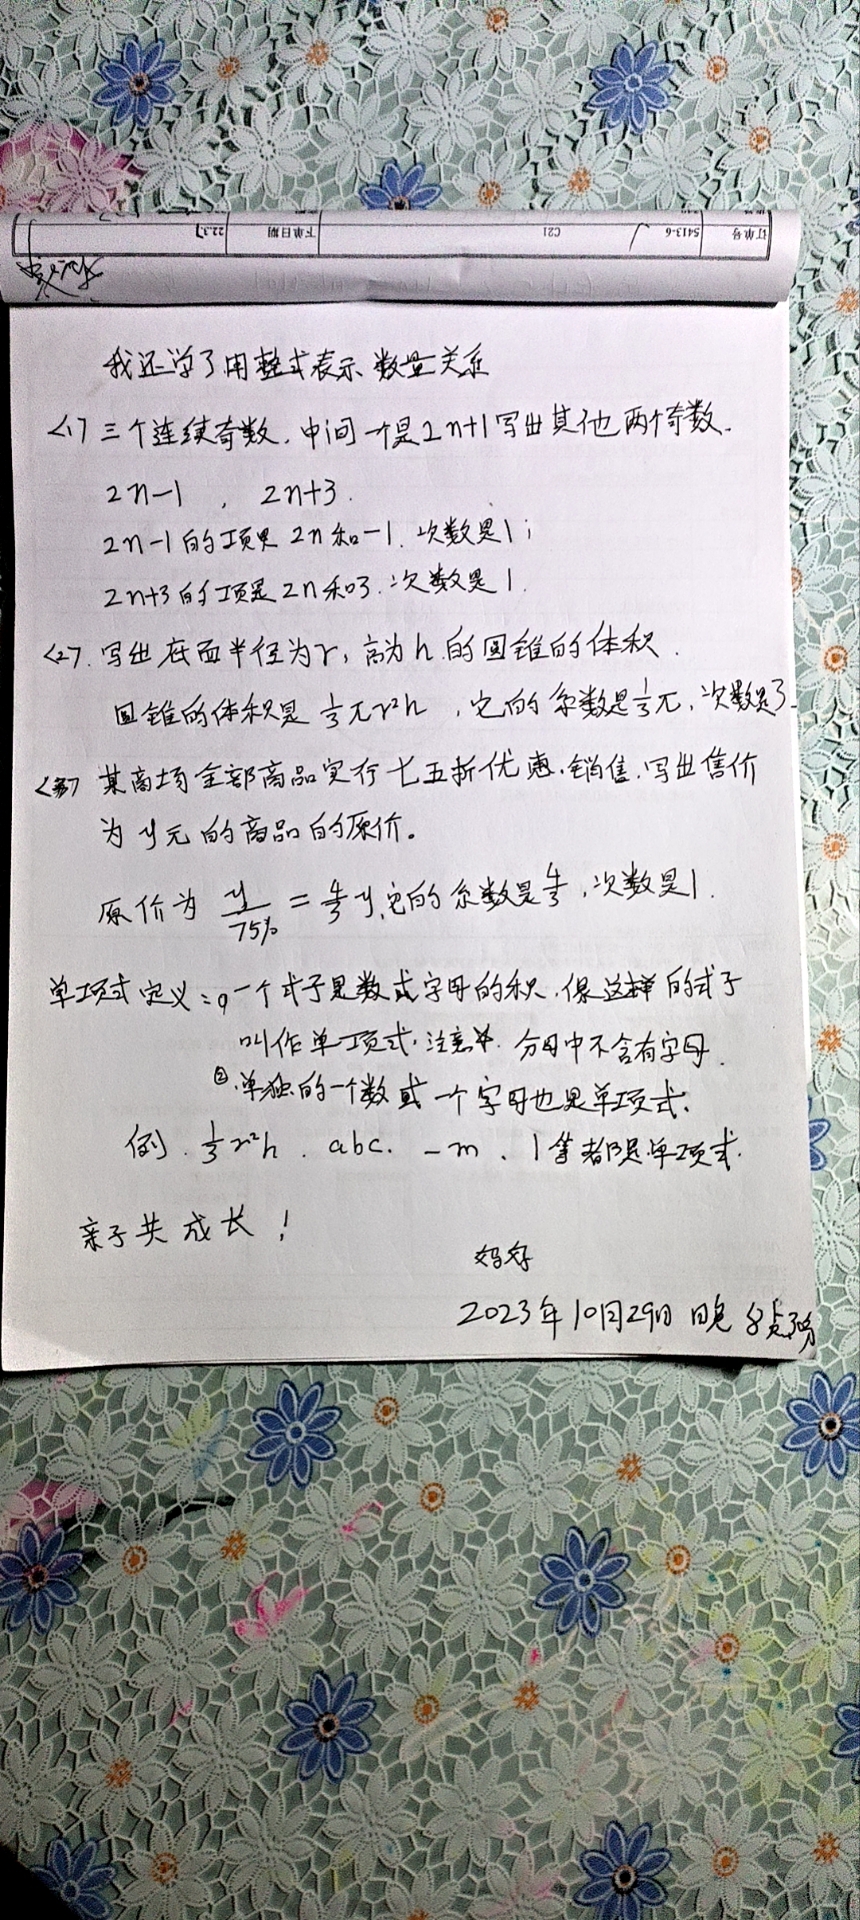 订单号 5413-6 C21 下单日期 22.3.7
我还学了用整式表示数量关系
<1> 三个连续奇数,中间一个是2n+1写出其他两个奇数.
2n-1 , 2n+3.
2n-1的项是 2n和-1.次数是1;
2n+3的项是2n和3.次数是1.
<2>.写出底面半径为r,高为h的圆锥的体积.
圆锥的体积是 1/3πr²h ,它的系数是1/3π,次数是3.
<3> 某商场全部商品实行七五折优惠.销售.写出售价
为y元的商品的原价。
原价为 y/75% = 4/3y,它的系数是4/3,次数是1.
单项式定义:①一个式子是数或字母的积.像这样的式子
叫作单项式.注意 分母中不含有字母.
②.单独的一个数或一个字母也是单项式.
例.1/3r²h . abc. -m 、1等都是单项式.
亲子共成长!
2023年10月29日 晚